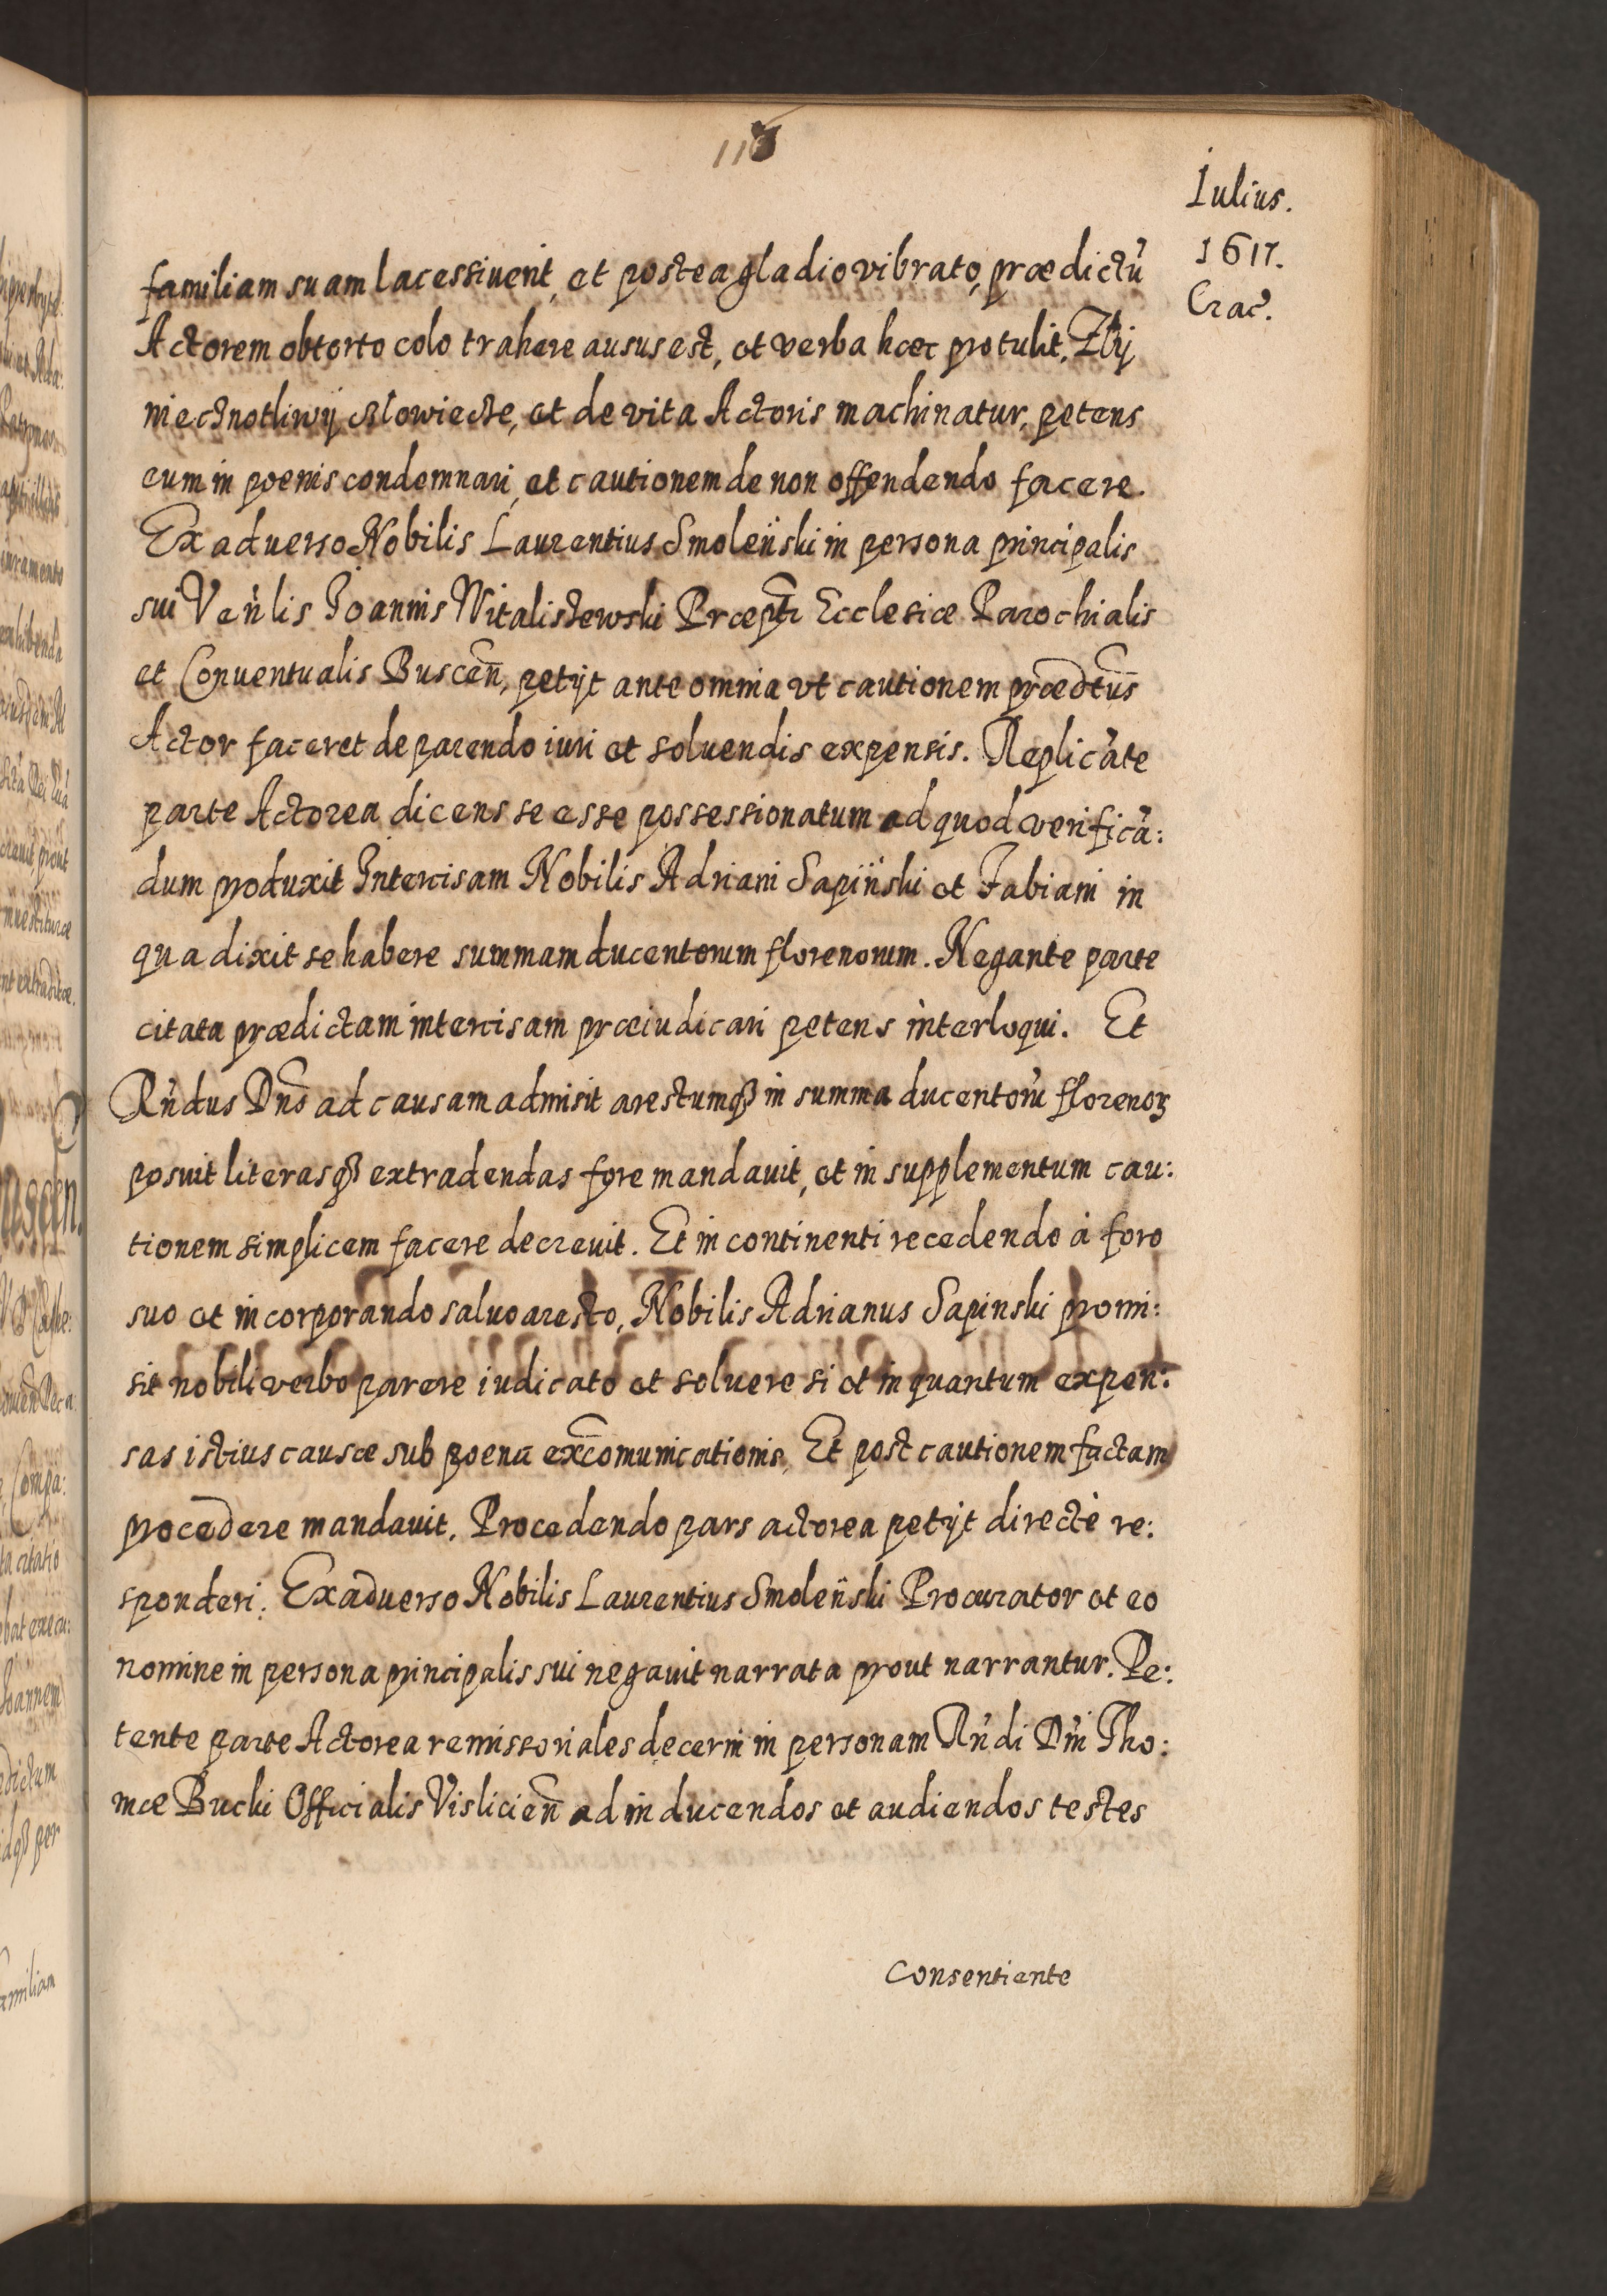 Iulius.
1617.
Crac̃.
familiam suam lacessiuerit, et postea gladio vibrato, prædictũ
Actorem obtorto colo trahere ausus est, et verba hæc protulit, Zlÿ
niecznotliwÿ człowiecze, et de vita Actoris machinatur, petens
eum in poenis condemnari, et cautionem de non offendendo facere.
Ex aduerso Nobilis Laurentius Smoleński in persona principalis
sui Veñlis Joannis Witaliszewski Præptr̃ Ecclesiæ Parochialis
et Conuentualis Buscen̄, petÿt ante omnia vt cautionem præd̃tus
Actor faceret de parendo iuri et soluendis expensis. Replicãte
parte Actorea dicens se esse possessionatum ad quod verificã:
dum produxit Intercisam Nobilis Adriani Sapiński et Fabiani in
qua dixit se habere summam ducentorum florenorum. Negante parte
citata prædictam intercisam præiudicari petens interloqui. Et
Rñdus Dns̃ ad causam admisit arestumqȝ in summa ducentorũ florenoꝝ
posuit literasqȝ extradendas fore mandauit, et in supplementum cau:
tionem simplicem facere decreuit. Et in continenti recedendo à foro
suo et incorporando saluo aresto, Nobilis Adrianus Sapinski promi:
sit nobili verbo parere iudicato et soluere si et inquantum expen:
sas istius causæ sub poena exc̃omunicationis. Et post cautionem factam
procedere mandauit. Procedendo pars actorea petÿt directè re:
sponderi. Ex aduerso Nobilis Laurentius Smoleński Procurator et eo
nomine in persona principalis sui negauit narrata prout narrantur. Pe:
tente parte Actorea remissoriales decerni in personam Rñdi Dñi Tho:
mæ Bucki Officialis Vislicien̄ ad inducendos et audiendos testes
Consentiente